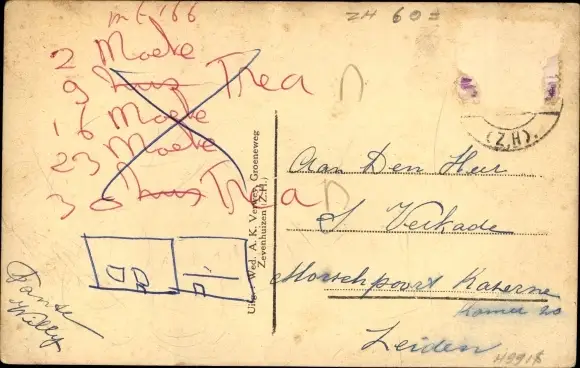 mrt '66
2 Moeke
9 thuis Thea
16 Moeke
23 Moeke
30 thuis Thea
Tante
Willy
Uitg. Wed. A. K. Verwey, Groeneweg
Zevenhuizen (Z.H.)
ZH 60
(Z.H).
Aan Den Heer
J Verkade
Morschpoort Kazerne
Kamer 20
Leiden
H9918